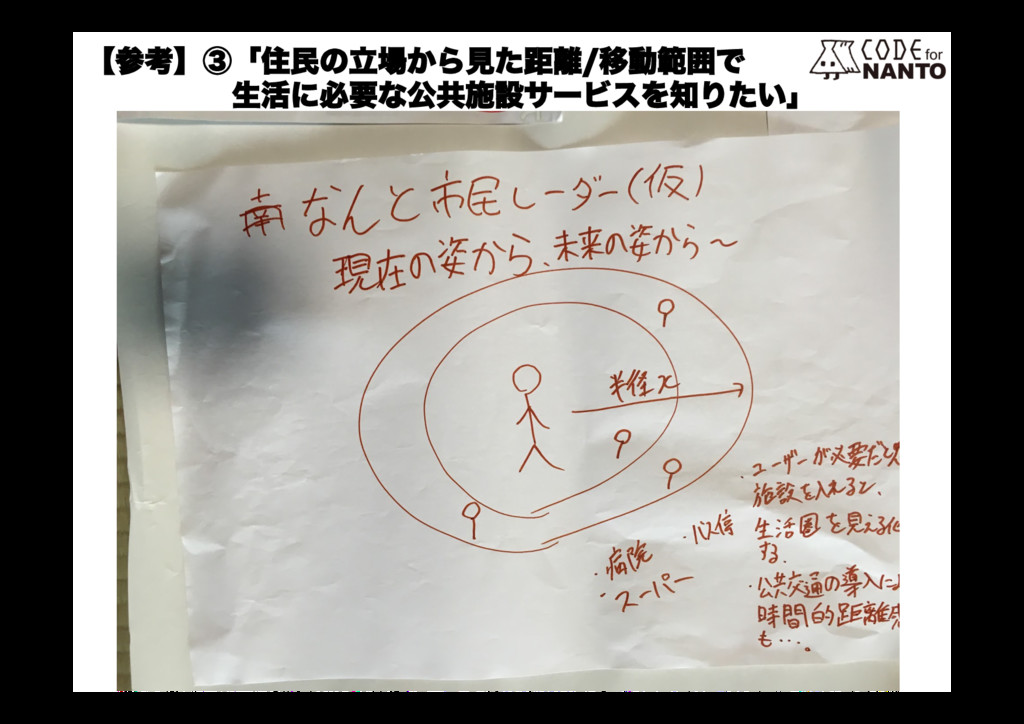 【参考】③「住民の立場から見た距離/移動範囲で
生活に必要な公共施設サービスを知りたい」
CODE for
NANTO
南なんと市民レーダー(仮)
現在の姿から、未来の姿から〜
半径x
・ユーザーが必要だと
施設を入れると、
生活圏を見える化
する.
・公共交通の導入に
時間的距離感
も…。
・バス停
・病院
・スーパー